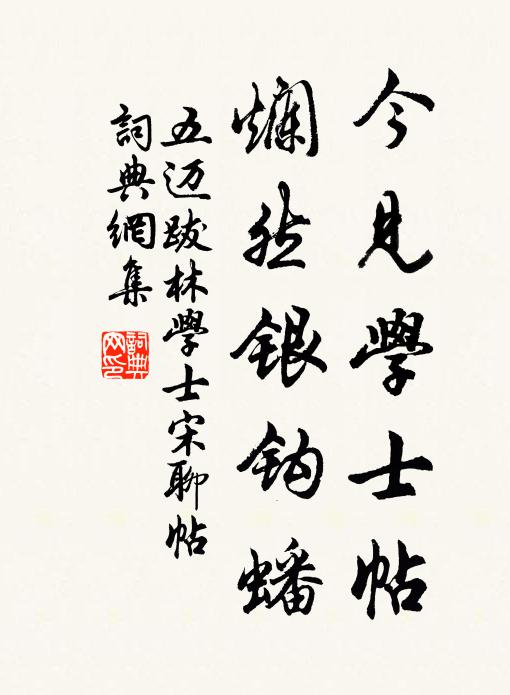 今見學士帖
爛然銀鈎蟠
五迈跋林學士宋聊帖
詞典網集
詞典網印